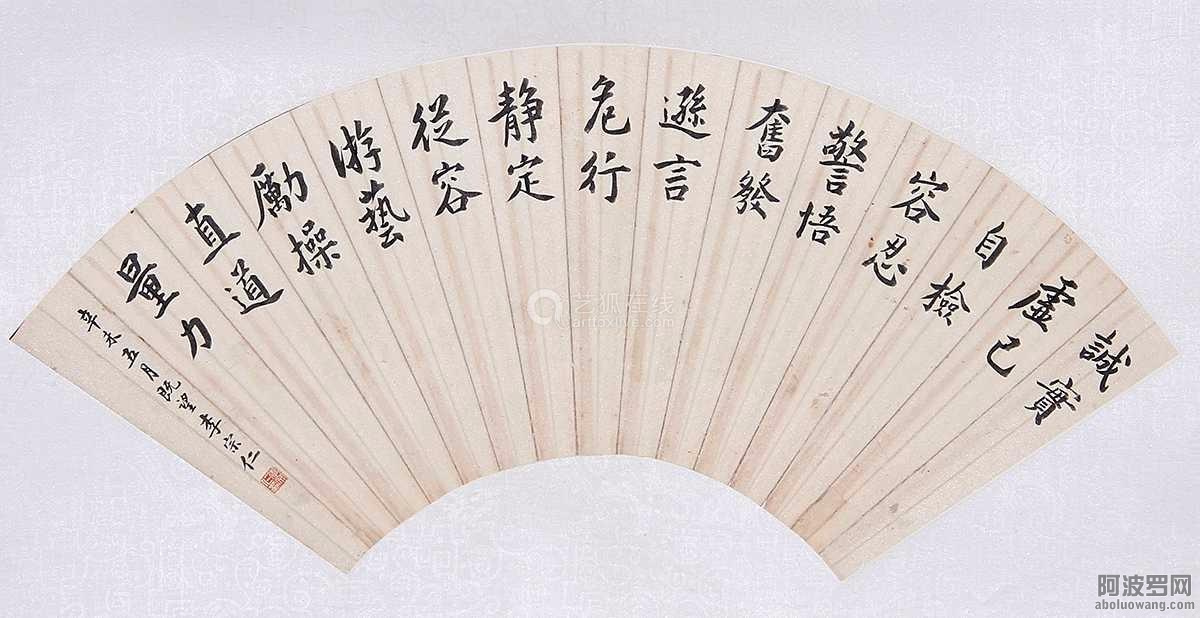 誠實
虛己
自檢
容忍
警悟
奮發
遜言
危行
靜定
從容
游藝
勵操
直道
量力
辛未五月既望李宗仁
艺狐在线
artfoxlive.com
阿波罗网
aboluowang.com